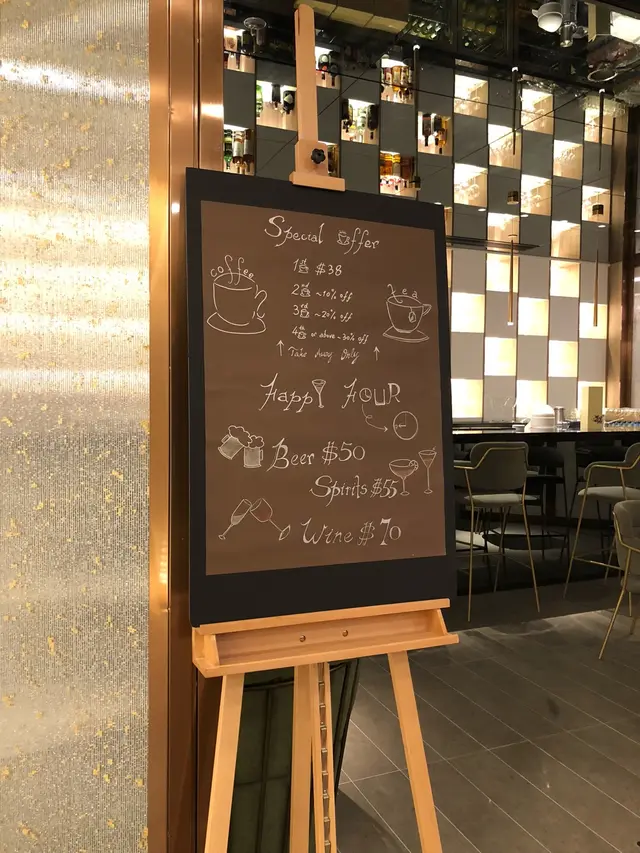 Special Offer
coffee
1st $38
tea
2nd ~10% off
3rd ~20% off
4th or above ~30% off
↑ Take Away Only ↑
Happy HOUR
Beer $50
Spirits $55
Wine $70